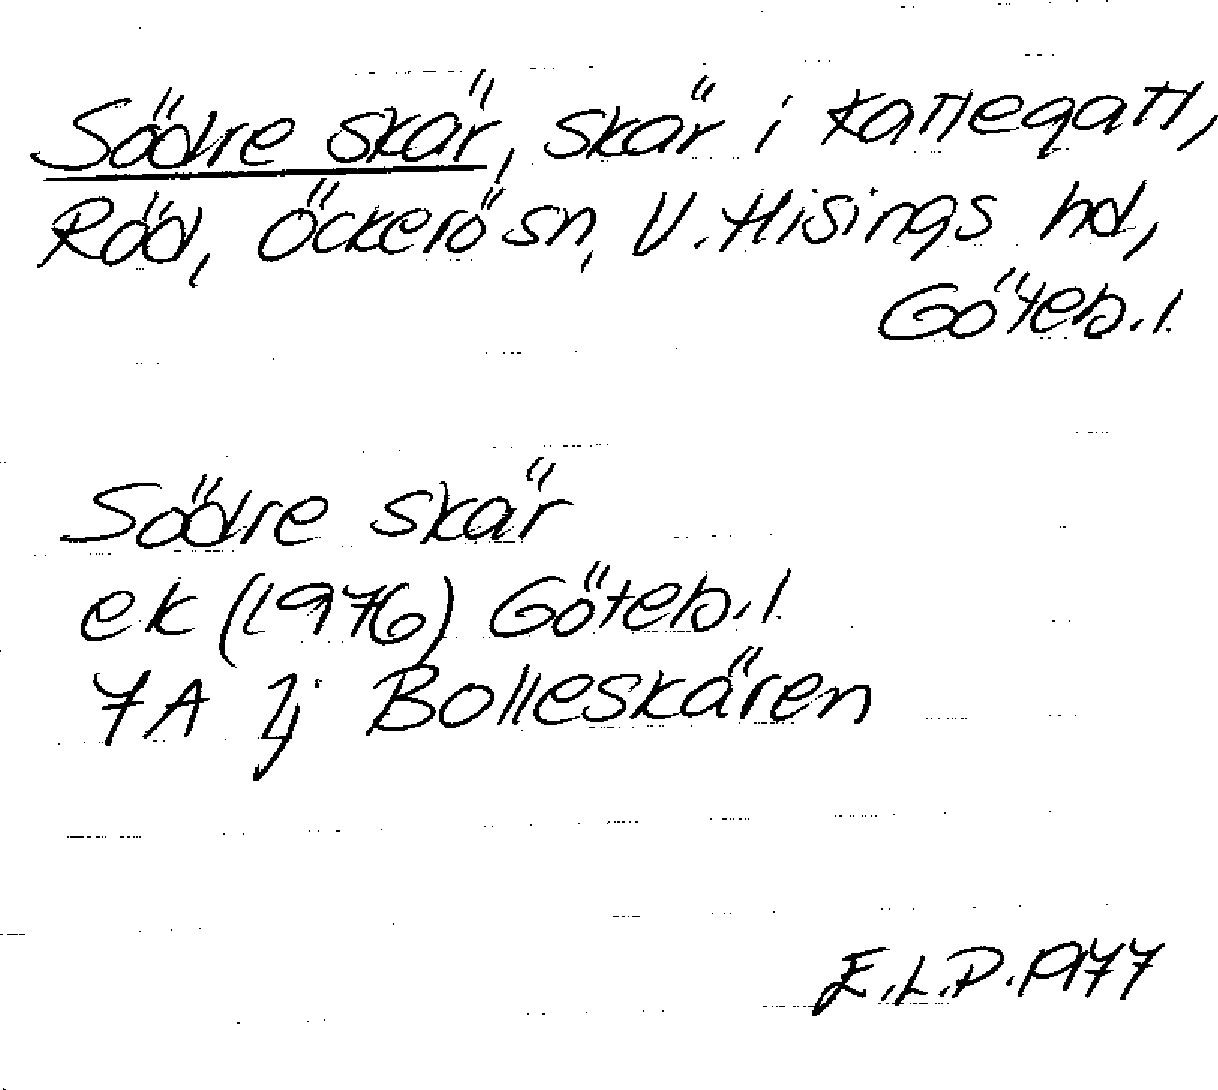 Södre skär, skär i Kattegatt,
Röd, Öckerö sn, V. Hisings hd,
Göteb. l.
Södre skär
ek (1976) Göteb. l.
7A 1j Bolleskären
E.L.P. 1977